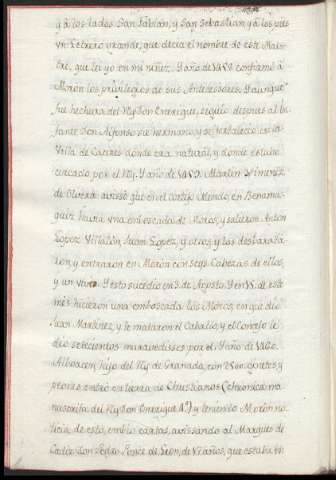 y á los lados San Fabian, y San Sebastian y á los pies
vn letrero grande, que decia el nombre de este Maes-
tre, que lei yo en mi niñez. Y año de confirmó á
Morón los privilegios de sus Antecesores. Y aunque
fue hechura del Rey Don Enrrique, siguió despues al In-
fante Don Alfonso su hermano, y se fortaleció en la
Villa de Caceres donde era natural, y donde estubo
cercado por el Rey. Y año de Martin Ximenez
de Olvera avisó que en el cortijo Mendo, en Benama-
quir havia vna emboscada de Moros, y salieron Anton
Lopez Villalón, Juan Lopez, y otros y los desbarata-
ron, y entraron en Morón con seys Cabezas de ellos,
y un vivo. Y esto sucedió en 3 de Agosto. Y en de este
mes hicieron una emboscada los Moros, en que dió
Juan Martinez, y le mataron el Caballo, y el Concejo le
dió setecientos maravedisses por el. Y año de
Alboacen, hijo del Rey de Granada, con ginetes, y
peones entró en tierra de Christianos (chronica ma-
nuscrita del Rey Don Enrrique 4º) y teniendo Morón no-
ticia de esto, embió cartas, avissando al Marques de
Cadiz don Rodrigo Ponce de Leon, de años, que estaba en